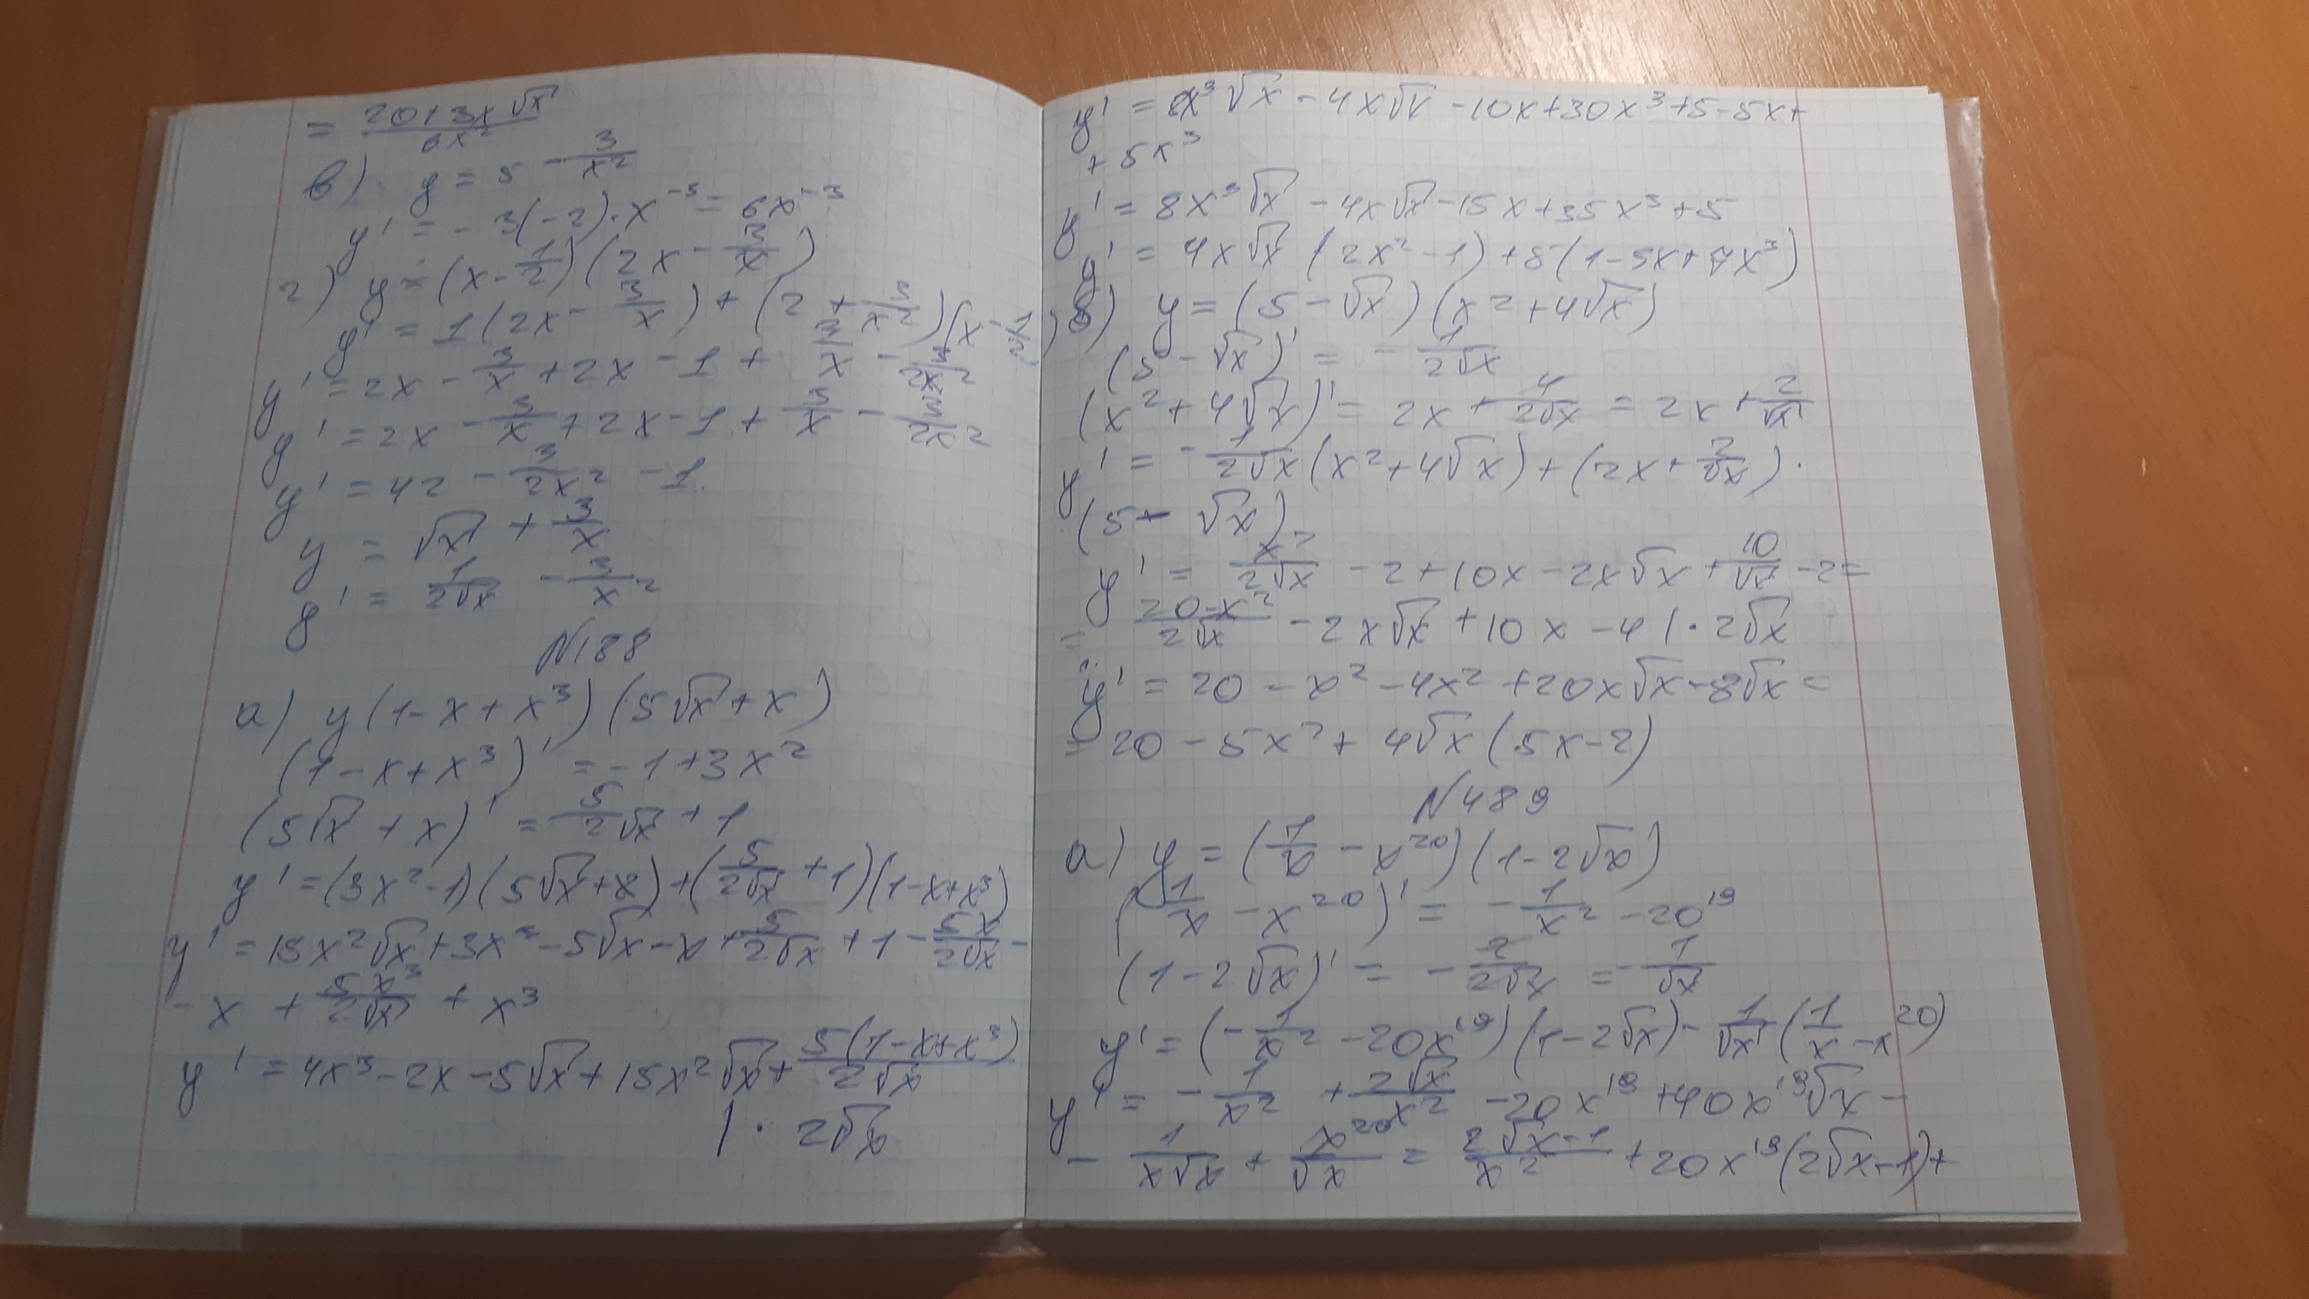 = (20+3x√x)/(6x²)
в) y = 5 - 3/x²
y' = -3(-2)·x⁻³ = 6x⁻³
г) y = (x - 1/2)(2x - 3/x)
y' = 1(2x - 3/x) + (2 + 3/x²)(x - 1/2)
y' = 2x - 3/x + 2x - 1 + 3/x - 3/2x²
y' = 2x - 3/x + 2x - 1 + 3/x - 3/2x²
y' = 42 - 3/2x² - 1
y = √x + 3/x
y' = 1/2√x - 3/x²
N188
а) y(1-x+x³)(5√x+x)
(1-x+x³)' = -1+3x²
(5√x+x)' = 5/2√x + 1
y' = (3x²-1)(5√x+x)+(5/2√x +1)(1-x+x³)
y' = 15x²√x+3x³-5√x-x+5/2√x+1-5x/2√x-
-x + 5x³/2√x + x³
y' = 4x³-2x-5√x+15x²√x+5(1-x+x³)/2√x
|· 2√x
y' = 8x³√x-4x√x-10x+30x³+5-5x+
+5x³
y' = 8x³√x-4x√x-15x+35x³+5
y' = 4x√x(2x²-1)+5(1-3x+7x³)
б) y = (5-√x)(x²+4√x)
(5-√x)' = -1/2√x
(x²+4√x)' = 2x+4/2√x = 2x+2/√x
y' = -1/2√x(x²+4√x)+(2x+2/√x)·
·(5-√x)
y' = x²/2√x -2+10x-2x√x+10/√x-2=
= 20-x²/2√x -2x√x+10x-4 |·2√x
y' = 20-x²-4x²+20x√x-8√x=
= 20-5x²+4√x(5x-2)
N489
а) y = (1/x - x²⁰)(1-2√x)
(1/x - x²⁰)' = -1/x² -20¹⁹
(1-2√x)' = -2/2√x = -1/√x
y' = (-1/x² -20x¹⁹)(1-2√x)-1/√x(1/x-x²⁰)
y' = -1/x² +2√x/x² -20x¹⁹+40x¹⁹√x-
-1/x√x + x²⁰/√x = 2√x-1/x² +20x¹⁹(2√x-1)+